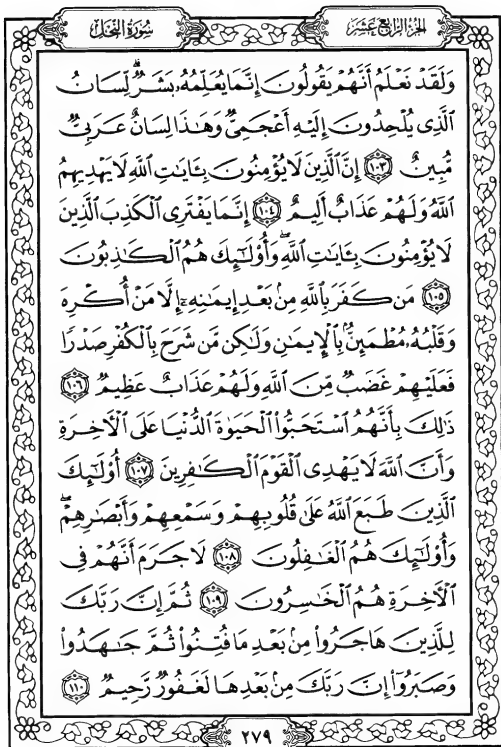 سُورَةُ النَّحْلِ
الجُزءُ الرَّابِعَ عَشَرَ
وَلَقَدْ نَعْلَمُ أَنَّهُمْ يَقُولُونَ إِنَّمَا يُعَلِّمُهُۥ بَشَرٌۗ لِّسَانُ
ٱلَّذِى يُلْحِدُونَ إِلَيْهِ أَعْجَمِىٌّ وَهَٰذَا لِسَانٌ عَرَبِىٌّ
مُّبِينٌ ١٠٣ إِنَّ ٱلَّذِينَ لَا يُؤْمِنُونَ بِـَٔايَٰتِ ٱللَّهِ لَا يَهْدِيهِمُ
ٱللَّهُ وَلَهُمْ عَذَابٌ أَلِيمٌ ١٠٤ إِنَّمَا يَفْتَرِى ٱلْكَذِبَ ٱلَّذِينَ
لَا يُؤْمِنُونَ بِـَٔايَٰتِ ٱللَّهِۖ وَأُو۟لَٰٓئِكَ هُمُ ٱلْكَٰذِبُونَ
١٠٥ مَن كَفَرَ بِٱللَّهِ مِنۢ بَعْدِ إِيمَٰنِهِۦٓ إِلَّا مَنْ أُكْرِهَ
وَقَلْبُهُۥ مُطْمَئِنٌّۢ بِٱلْإِيمَٰنِ وَلَٰكِن مَّن شَرَحَ بِٱلْكُفْرِ صَدْرًا
فَعَلَيْهِمْ غَضَبٌ مِّنَ ٱللَّهِ وَلَهُمْ عَذَابٌ عَظِيمٌ ١٠٦
ذَٰلِكَ بِأَنَّهُمُ ٱسْتَحَبُّوا۟ ٱلْحَيَوٰةَ ٱلدُّنْيَا عَلَى ٱلْءَاخِرَةِ
وَأَنَّ ٱللَّهَ لَا يَهْدِى ٱلْقَوْمَ ٱلْكَٰفِرِينَ ١٠٧ أُو۟لَٰٓئِكَ
ٱلَّذِينَ طَبَعَ ٱللَّهُ عَلَىٰ قُلُوبِهِمْ وَسَمْعِهِمْ وَأَبْصَٰرِهِمْۖ
وَأُو۟لَٰٓئِكَ هُمُ ٱلْغَٰفِلُونَ ١٠٨ لَا جَرَمَ أَنَّهُمْ فِى
ٱلْءَاخِرَةِ هُمُ ٱلْخَٰسِرُونَ ١٠٩ ثُمَّ إِنَّ رَبَّكَ
لِلَّذِينَ هَاجَرُوا۟ مِنۢ بَعْدِ مَا فُتِنُوا۟ ثُمَّ جَٰهَدُوا۟
وَصَبَرُوٓا۟ إِنَّ رَبَّكَ مِنۢ بَعْدِهَا لَغَفُورٌ رَّحِيمٌ ١١٠
٢٧٩